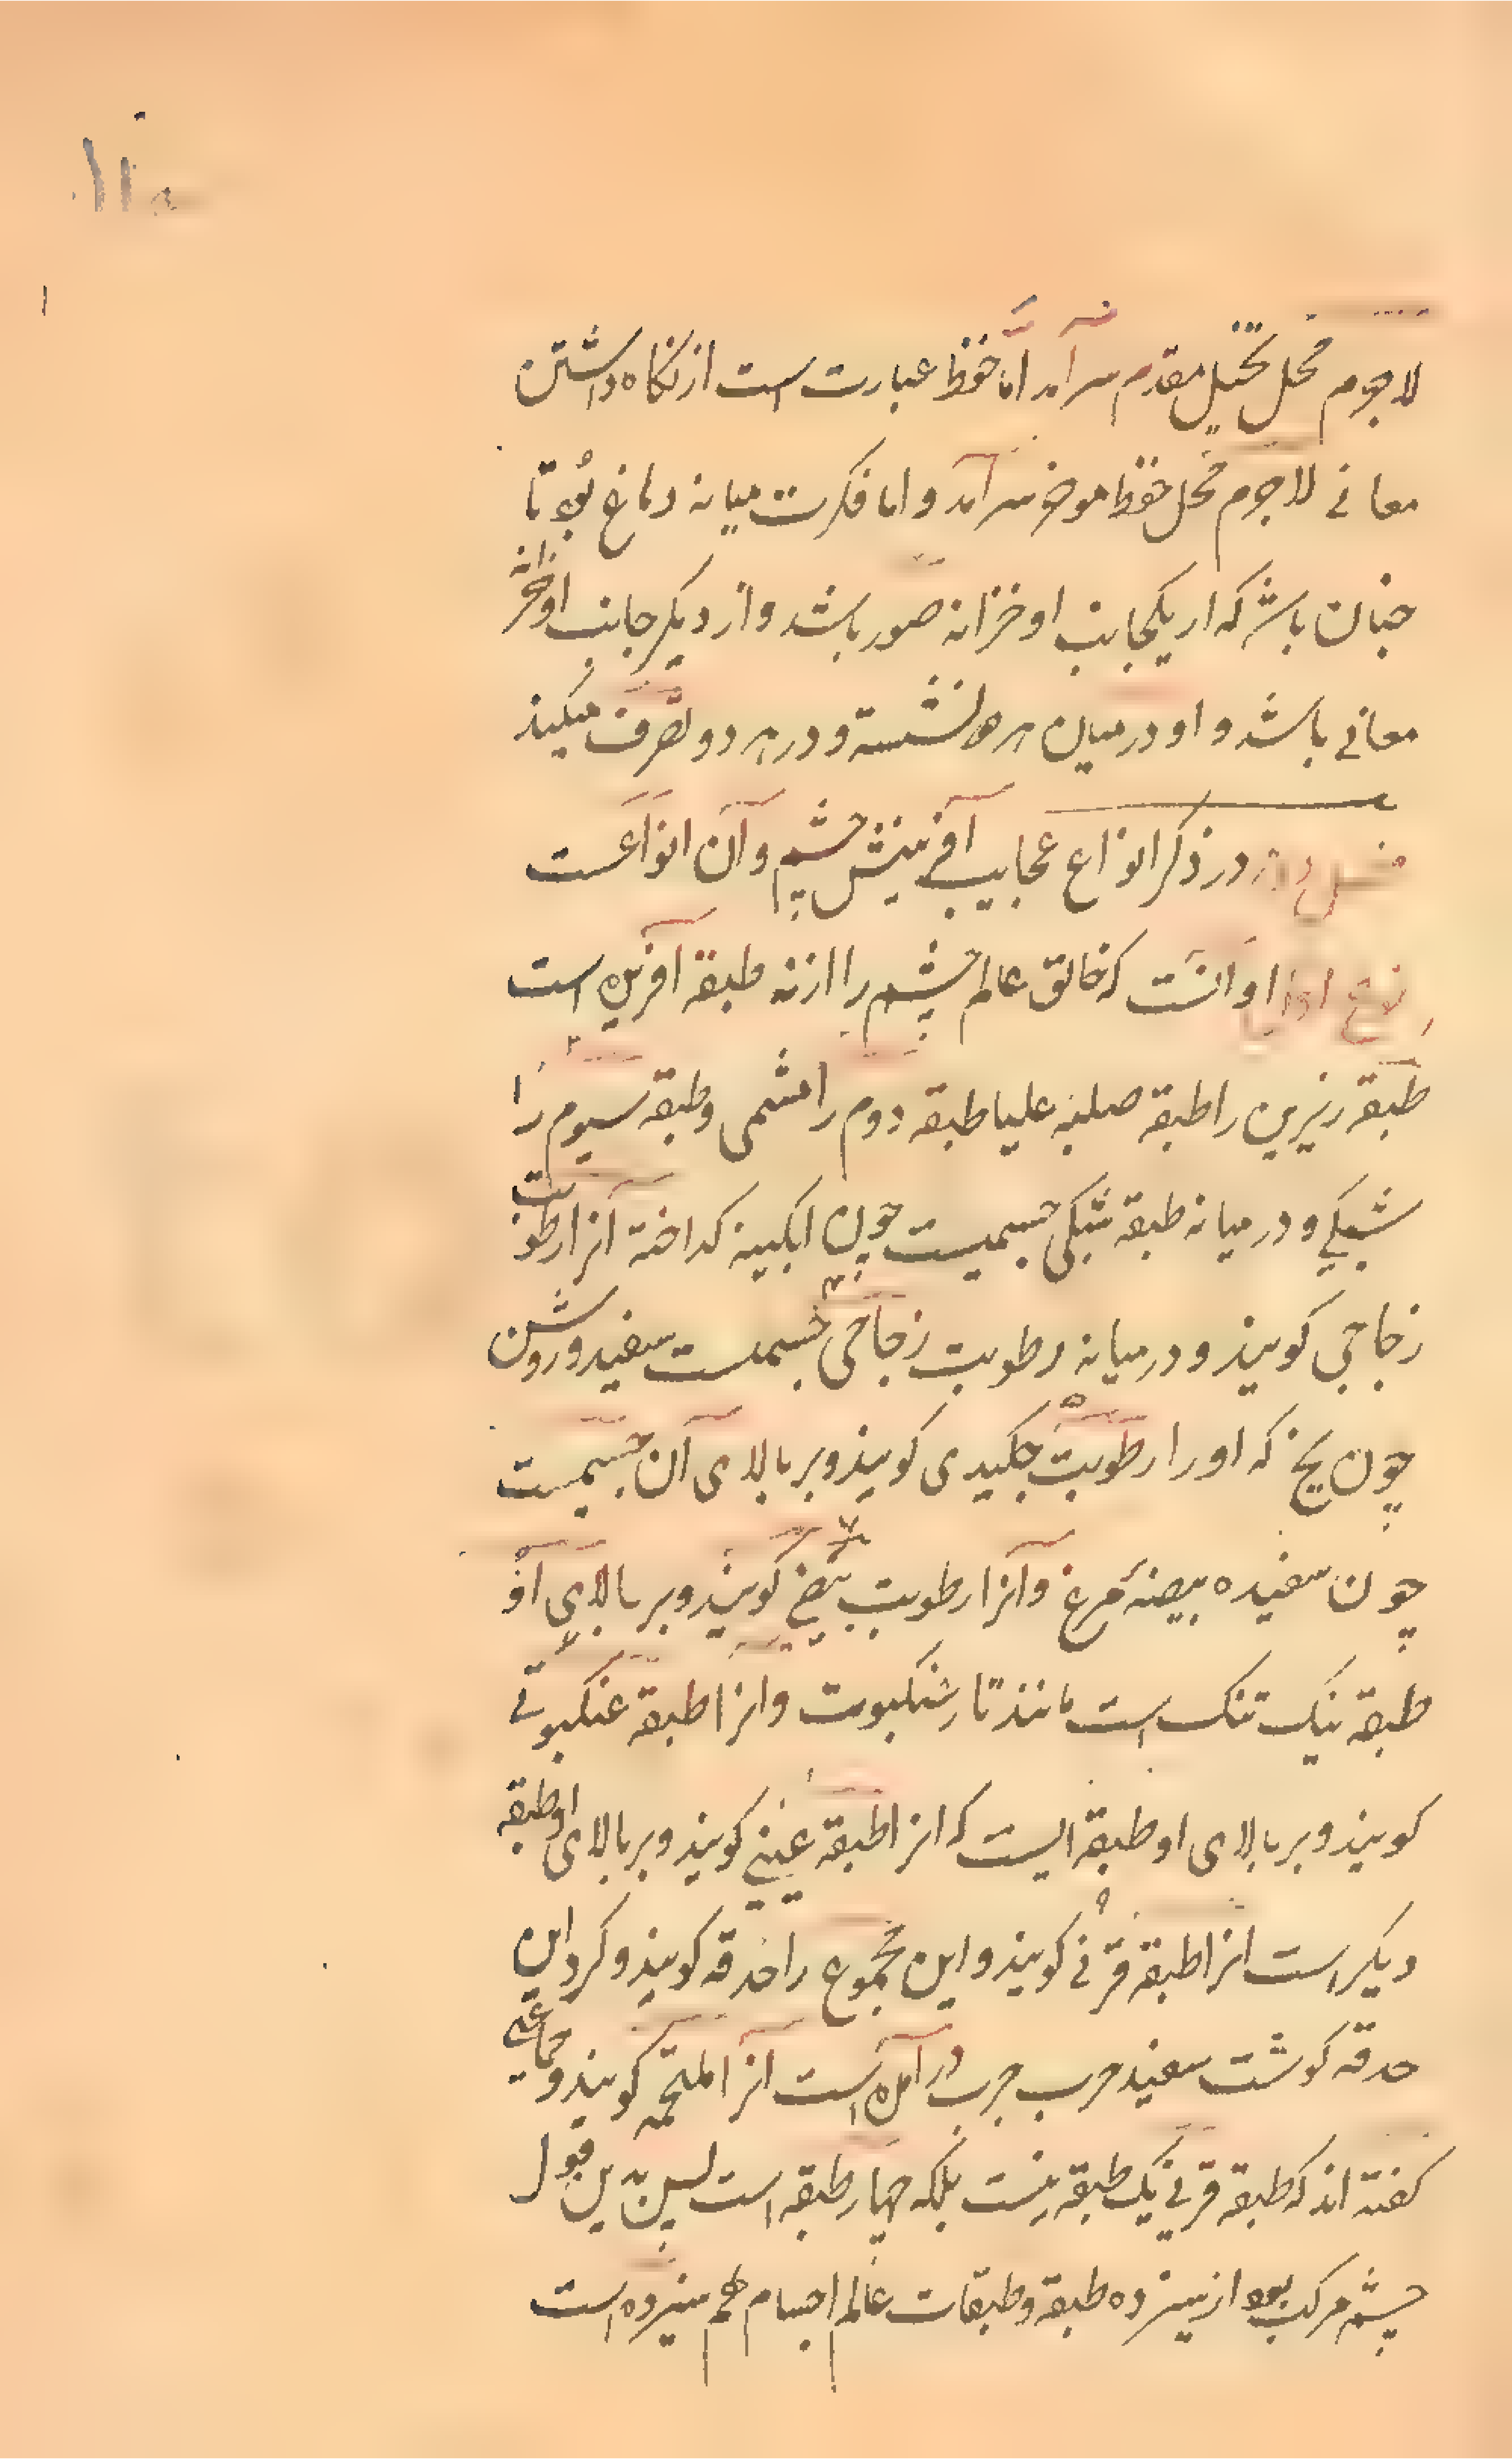 لاجرم محل تخیل مقدم سر آمد اما حفظ عبارت است از نکاه داشتن
معانی لاجرم محل حفظ موخر سر آمد و اما فکرت میانه دماغ بود تا
جنان باشد که از یکجانب او خزانه صور باشد و از دیکر جانب او خزانه
معانی باشد و او در میان هر دو نشسته و در هر دو تصرف میکند
در ذکر انواع عجایب آفرینش چشم و آن انواعست
نوع اول آنست که خالق عالم چشم را از نه طبقه آفریده است
طبقه زیرین را طبقه صلبه علیا طبقه دوم را مشمی و طبقه سیوم را
شبکی و در میانه طبقه شبکی جسمیست چون ابکینه کداخته آنرا رطوبت
زجاجی کویند و در میانه رطوبت زجاجی جسمیست سفید و روشن
چون یخ که او را رطوبت جلیدی کویند و بر بالای آن جسمیست
چون سفیده بیضهٔ مرغ و آنرا رطوبت بیضی کویند و بر بالای او
طبقه نیک تنک است مانند تار عنکبوت و انرا طبقه عنکبوتی
کویند و بر بالای او طبقه ایست که انرا طبقه عنبی کویند و بر بالای او طبقه
دیکر است انرا طبقه قرنی کویند و این مجموع را حدقه کویند و کرد این
حدقه کوشت سفید چرب در آمده است آنرا ملتحمه کویند و جماعتی
کفته اند که طبقه قرنی یک طبقه نیست بلکه چهار طبقه است پس بدین قول
چشم مرکب بود از سیزده طبقه و طبقات عالم اجسام هم سیزده است